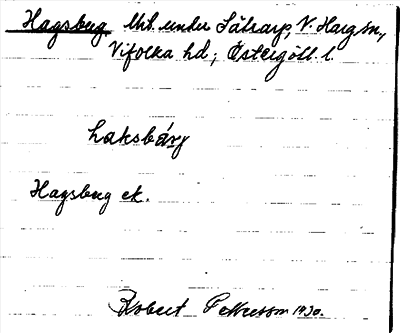 Hagsberg Utj. under Sätrarp, V. Harg sn,
Vifolka hd; Östergötl. l.
haksbärj
Hagsberg ek.
Robert Pettersson 1930.